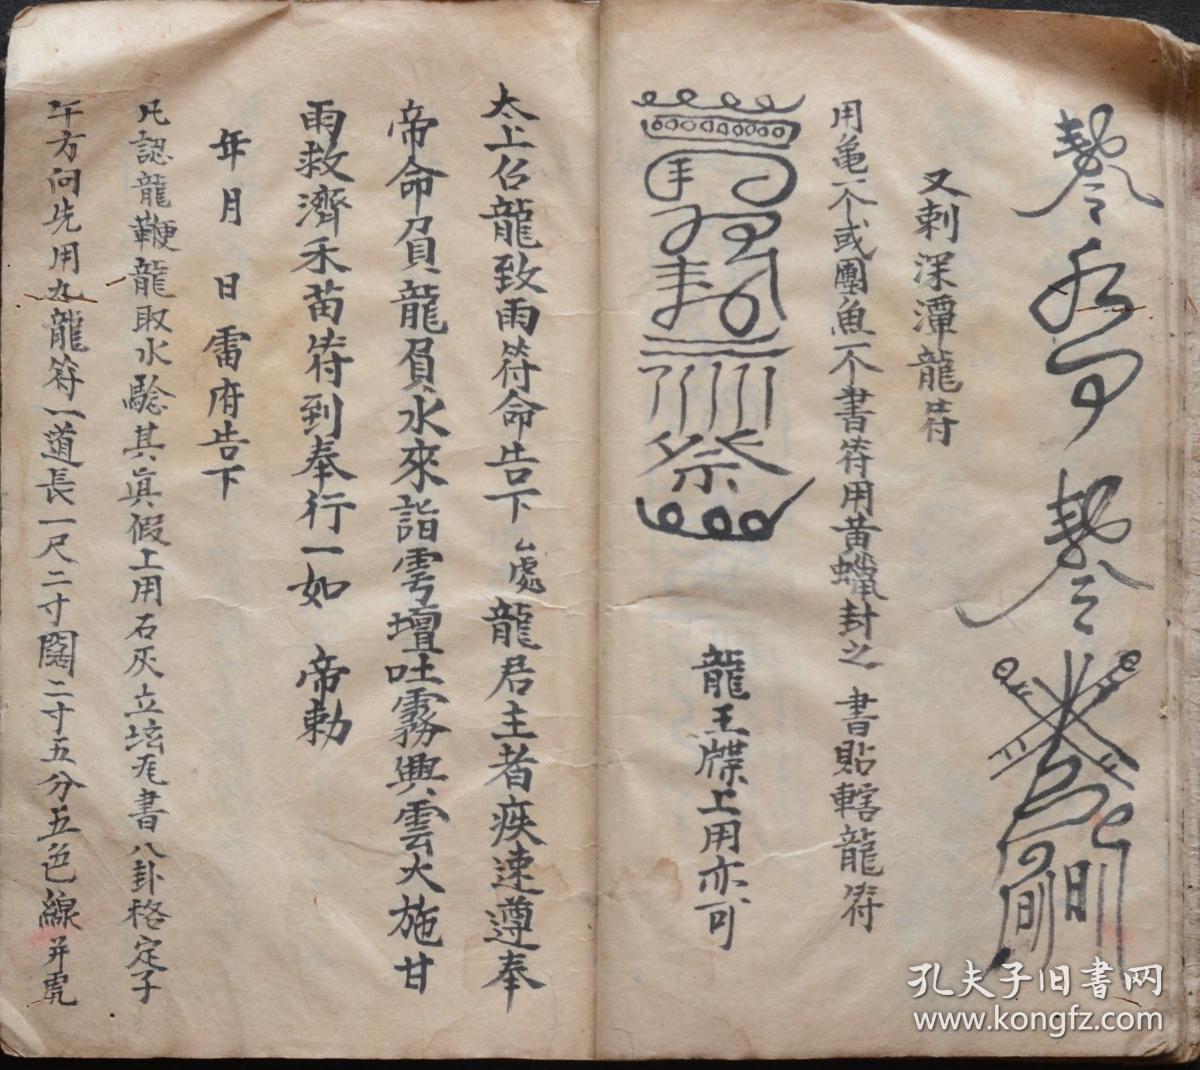 又刺深潭龍符
用亀一个或團魚一个書符用黄蠟封之 書貼轄龍符
龍王牒上用亦可
太上召龍致雨符命告下 厶處龍君主者疾速遵奉
帝命 負龍負水來詣雩壇吐霧興雲大施甘
雨救濟禾苗符到奉行一如 帝勅
年 月 日 雷府告下
凡認龍鞭龍取水驗其真假上用石灰立坛 書八卦格定子
午方向先用九龍符一道長一尺二寸闊二寸五分五色線并
孔夫子旧書网
www.kongfz.com